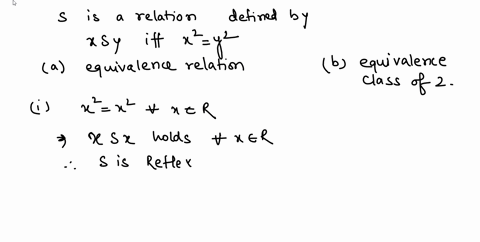 S is a relation defined by
x S y iff x² = y²
(a) equivalence relation
(b) equivalence class of 2.
(i) x² = x² ∀ x ∈ R
⇒ x S x holds ∀ x ∈ R
∴ S is Reflex